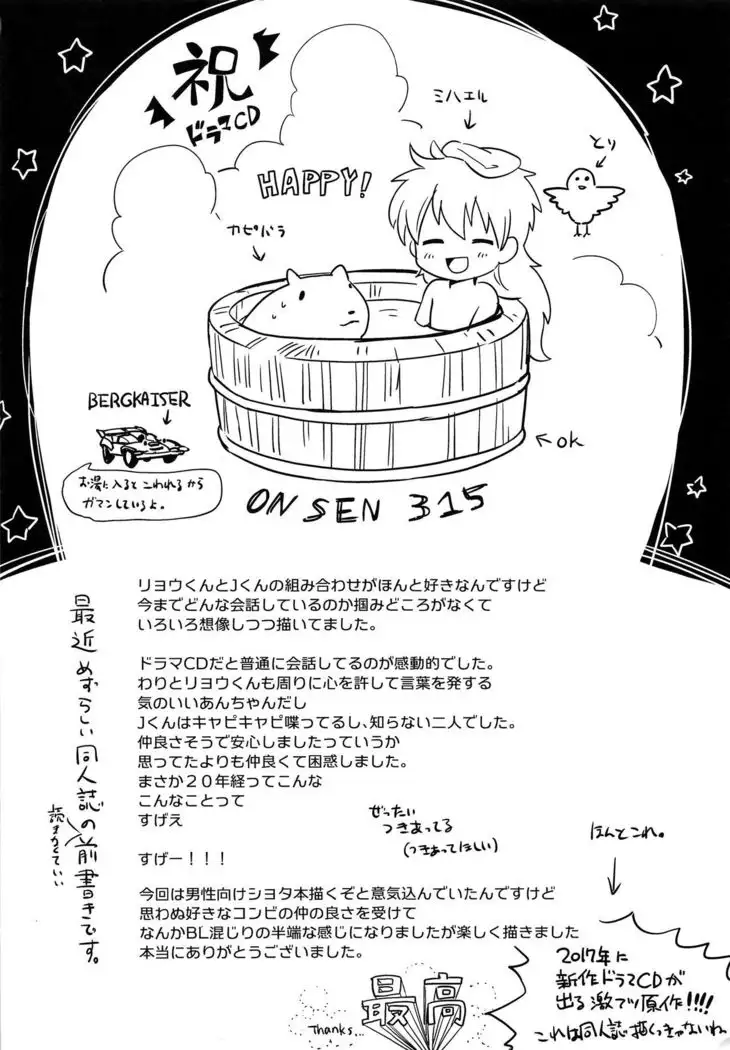 祝
ドラマCD
ミハエル
とり
HAPPY!
カピバラ
BERGKAISER
お湯に入るとこわれるから
ガマンしているよ。
←OK
ONSEN 315
最近めずらしい同人誌の前書きです。
読まなくていい
リョウくんとJくんの組み合わせがほんと好きなんですけど
今までどんな会話しているのか掴みどころがなくて
いろいろ想像しつつ描いてました。
ドラマCDだと普通に会話してるのが感動的でした。
わりとリョウくんも周りに心を許して言葉を発する
気のいいあんちゃんだし
Jくんはキャピキャピ喋ってるし、知らない二人でした。
仲良さそうで安心しましたっていうか
思ってたよりも仲良くて困惑しました。
まさか20年経ってこんな
こんなことって
すげえ
ぜったい
つきあってる
(つきあってほしい)
すげー！！！
ほんとこれ。
今回は男性向けショタ本描くぞと意気込んでいたんですけど
思わぬ好きなコンビの仲の良さを受けて
なんかBL混じりの半端な感じになりましたが楽しく描きました
本当にありがとうございました。
Thanks...
最高
2017年に
新作ドラマCDが
出る激アツ原作!!!!
これは同人誌描くっきゃないわ〜